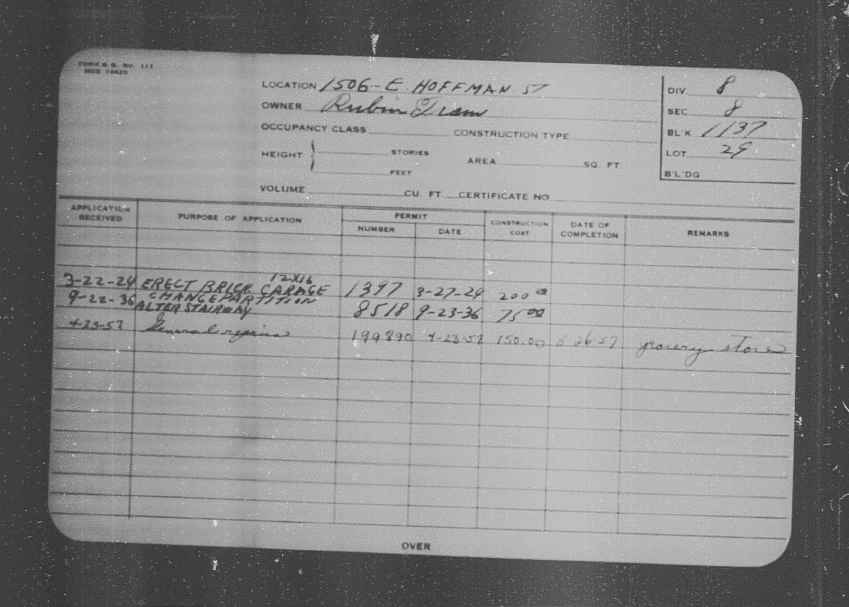 FORM B.B. No. 111
LOCATION 1506-E. HOFFMAN ST
OWNER Rubin
OCCUPANCY CLASS CONSTRUCTION TYPE
HEIGHT } STORIES FEET AREA SQ. FT
VOLUME CU. FT CERTIFICATE NO
DIV. 8
SEC 8
BL'K 1137
LOT 29
B'L'DG
APPLICATION RECEIVED PURPOSE OF APPLICATION PERMIT NUMBER DATE CONSTRUCTION COST DATE OF COMPLETION REMARKS
12X16
3-22-24 ERECT BRICK GARAGE 1397 3-27-24 200 00
9-22-36 CHANGE PARTITION
ALTER STAIRWAY 8518 9-23-36 75 00
4-23-57 General repairs 199890 4-23-57 150.00 26-57 grocery store
OVER